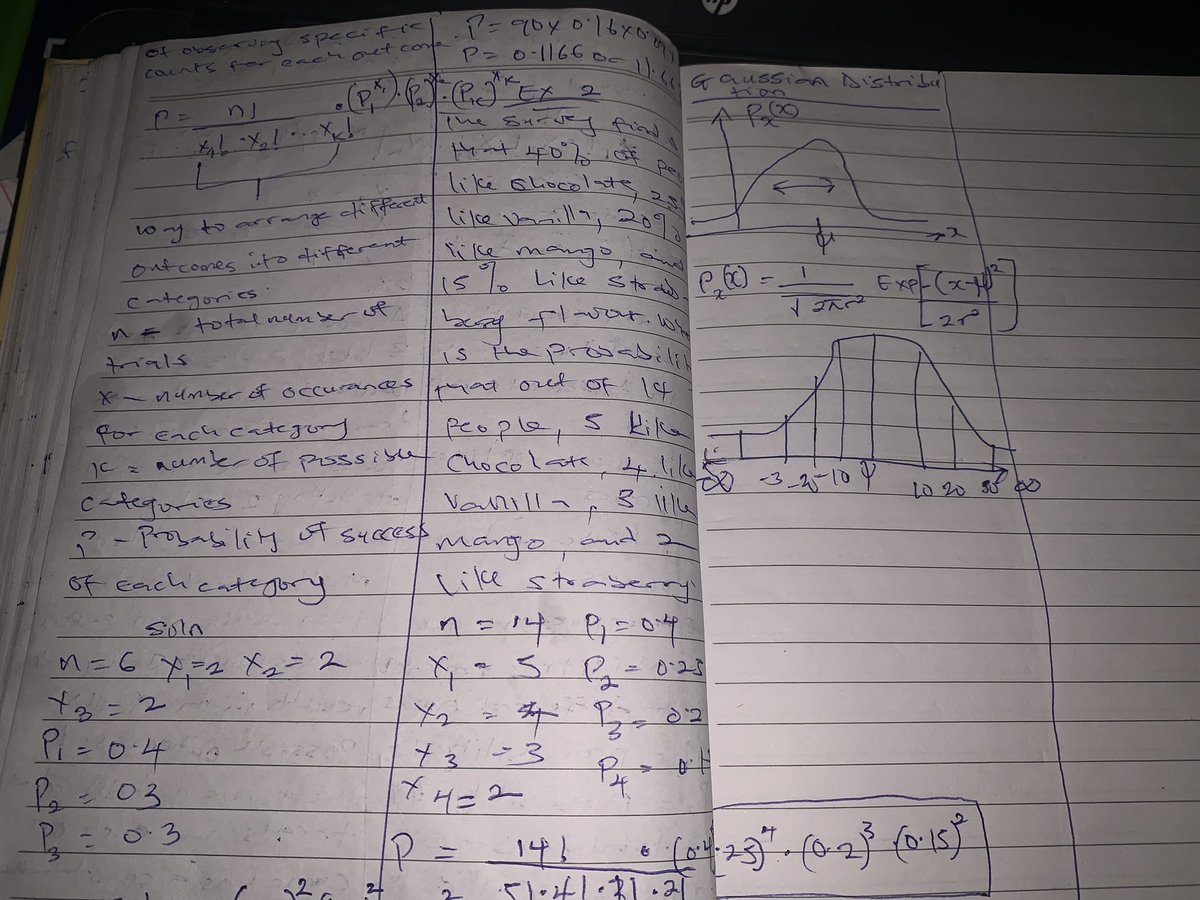 of observing specific
counts for each outcome
P = n! / x₁! · x₂! ... xₖ! · (P₁^x₁) · (P₂^x₂) · (Pₖ)^xₖ
way to arrange different
outcomes into different
categories.
n = total number of
trials
x - number of occurances
for each category
k = number of possible
categories
P - Probability of success
of each category
soln
n = 6 x₁ = 2 x₂ = 2
x₃ = 2
P₁ = 0.4
P₂ = 03
P₃ = 0.3
P = 90 x 0.16 x
P = 0.1166 or
Ex 2
The survey find
that 40% of
like chocolate,
like vanilla, 20%
like mango, and
15% like
flavor.
is the
that out of 14
people, 5 like
chocolate, 4 like
vanilla, 3 like
mango, and 2
like straberry
n = 14 P₁ = 0.4
x₁ = 5 P₂ = 0.25
x₂ = 4 P₃ = 0.2
x₃ = 3 P₄ =
x₄ = 2
P = 14! / 5! · 4! · 3! · 2! · (0.4 .25)⁴ · (0.2)³ · (0.15)²
Gaussian Distribu
tion
Pₓ(x)
x
μ
Pₓ(x) = 1 / √2πσ² Exp[-(x-μ)² / 2σ²]
-∞ -3 -2σ -1σ μ 1σ 2σ 3σ ∞